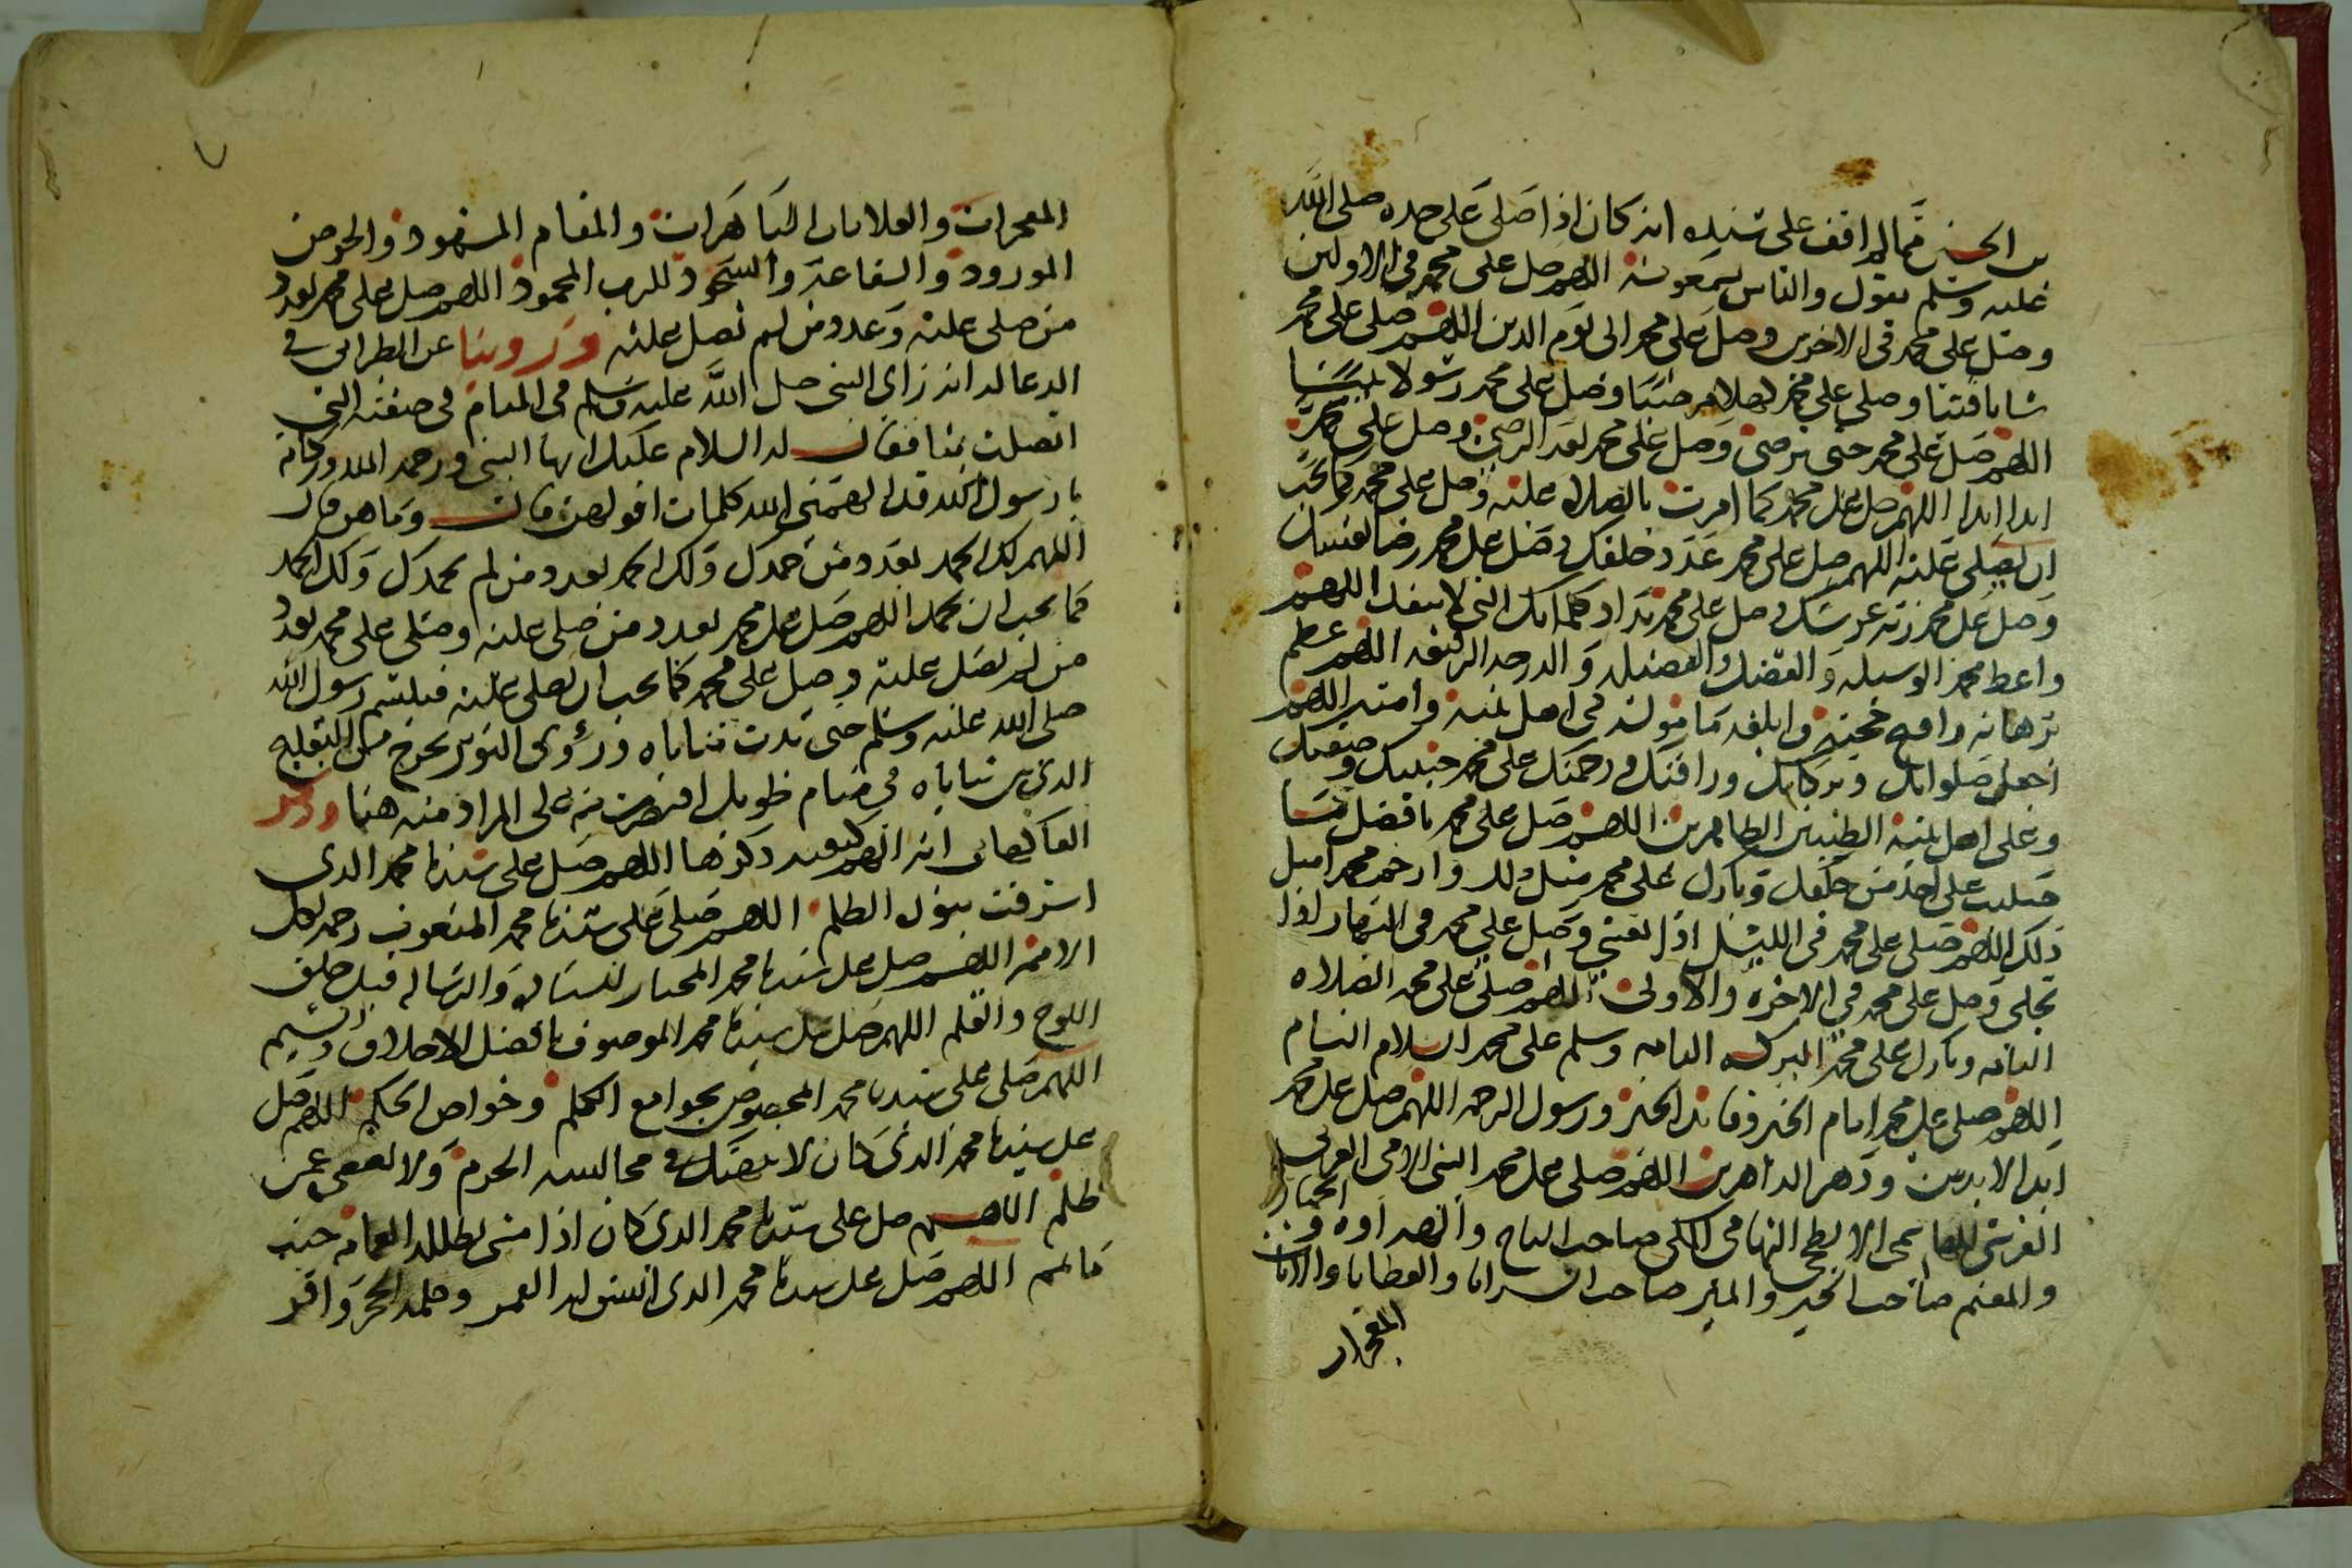 بن الحسن فما لم اقف على سنده انه كان اذا صلى على جده صلى الله
عليه وسلم يقول والناس يسمعونه اللهم صل على محمد في الاولين
وصل على محمد في الاخرين وصل على محمد الى يوم الدين اللهم صلى على محمد
شابا فتيا وصلى على محمد كهلا مرضيا وصل على محمد رسولا نبيا
اللهم صل على محمد حتى ترضى وصل على محمد بعد الرضى وصل على محمد
ابدا ابدا اللهم صل على محمد كما امرت بالصلاه عليه وصل على محمد كما تحب
ان يصلى عليه اللهم صل على محمد عدد خلقك وصل على محمد رضا نفسك
وصل على محمد زنة عرشك وصل على محمد مداد كلماتك التي لا تنفد اللهم
واعط محمد الوسيله والفضل والفضيله والدرجه الرفيعه اللهم عظم
برهانه وافلج حجته وابلغه ماموله في اهل بيته وامته اللهم
اجعل صلواتك وبركاتك ورافتك ورحمتك على محمد حبيبك وصفيك
وعلى اهل بيته الطيبين الطاهرين اللهم صل على محمد بافضل ما
صليت على احد من خلقك وبارك على محمد مثل ذلك وارحم محمد امثل
ذلك اللهم صلى على محمد في الليل اذا يغشى وصل على محمد في النهار اذا
تجلى وصل على محمد في الاخره والاولى اللهم صلى على محمد الصلاه
التامه وبارك على محمد البركه التامه وسلم على محمد السلام التام
اللهم صلى على محمد امام الخير وقائد الخير ورسول الرحمه اللهم صل على محمد
ابد الابدين ودهر الداهرين اللهم صلى على محمد النبي الامي العربي
القرشي الهاشمي الابطحي التهامي المكي صاحب التاج والهراوه والجهاد
والمغنم صاحب الخير والمير صاحب السرايا والعطايا والايات
المعجزات
المعجزات والعلامات الباهرات والمقام المشهود والحوض
المورود والشفاعة والسجود للرب المحمود اللهم صل على محمد بعدد
من صلى عليه وعدد من لم يصل عليه وروينا عن الطبراني في
الدعا له انه راى النبي صلى الله عليه وسلم في المنام في صفته التي
اتصلت بنا فقال له السلام عليك ايها النبي ورحمه الله وبركاته
يا رسول الله قد الهمني الله كلمات اقولهن قال وما هن قال
اللهم لك الحمد بعدد من حمدك ولك الحمد بعدد من لم يحمدك ولك الحمد
كما تحب ان تحمد اللهم صل على محمد بعدد من صلى عليه وصلى على محمد بعدد
من لم يصل عليه وصل على محمد كما تحب ان يصلى عليه فتبسم رسول الله
صلى الله عليه وسلم حتى بدت ثناياه ورؤى النور يخرج من التفليج
الذي بين ثناياه في منام طويل اقتصرت منه على المراد منه هنا وذكر
الفاكهاني انه الهم كيفيه ذكرها اللهم صل على سيدنا محمد الذي
اشرقت بنوره الظلم اللهم صلى على سيدنا محمد المنعوت رحمه لكل
الامم اللهم صل على سيدنا محمد المختار للسياده والرساله قبل خلق
اللوح والقلم اللهم صل على سيدنا محمد الموصوف بافضل الاخلاق والشيم
اللهم صلى على سيدنا محمد المخصوص بجوامع الكلم وخواص الحكم اللهم صل
على سيدنا محمد الذي كان لا تنتهك في مجالسه الحرم ولا يغضي عمن
ظلم اللهم صل على سيدنا محمد الذي كان اذا مشى تظلله الغمامه حيث
ما يمم اللهم صل على سيدنا محمد الذي انشق له القمر وكلمه الحجر واقر